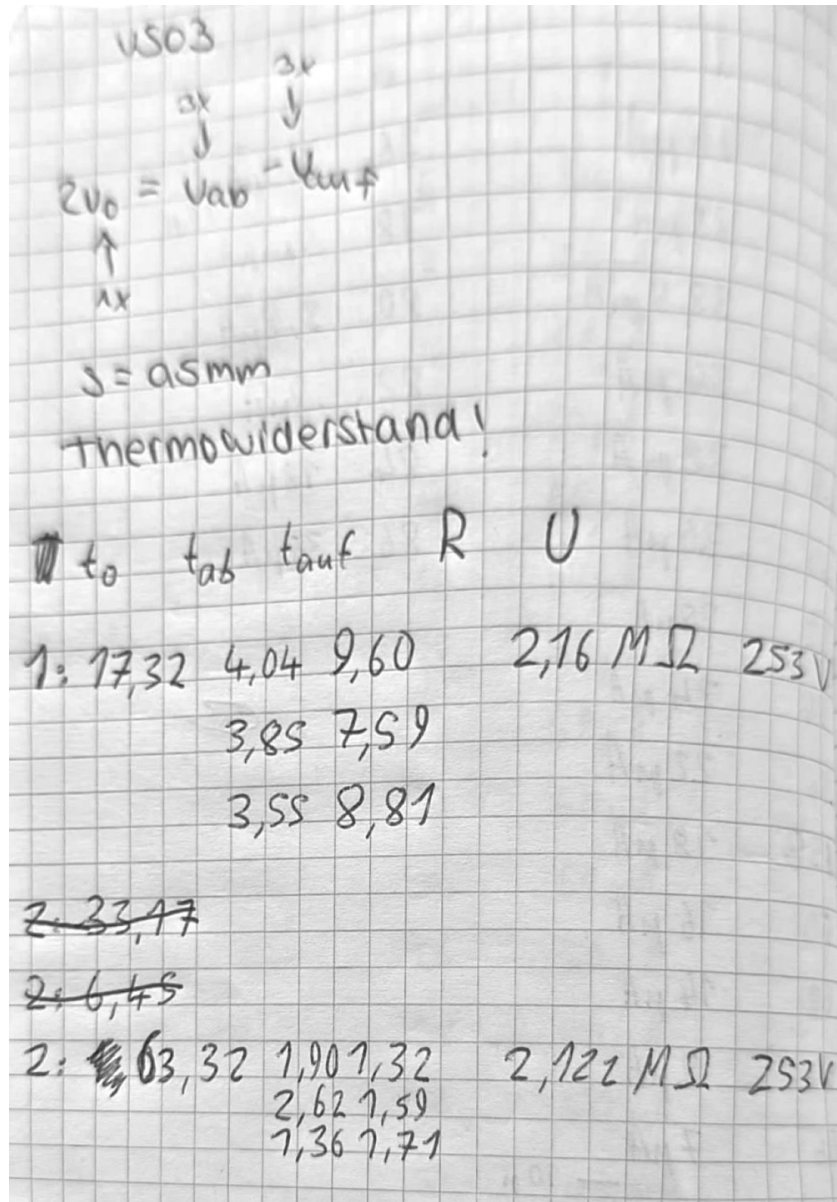 VS03
3x 3x
↓ ↓
2v₀ = vab - vauf
↑
1x
s = 0,5mm
Thermowiderstand!
t₀ tab tauf R U
1: 17,32 4,04 9,60 2,16 MΩ 253V
3,85 7,59
3,55 8,81
2: 33,17
2: 6,45
2: 63,32 1,90 1,32 2,122 MΩ 253V
2,62 1,59
1,36 1,71